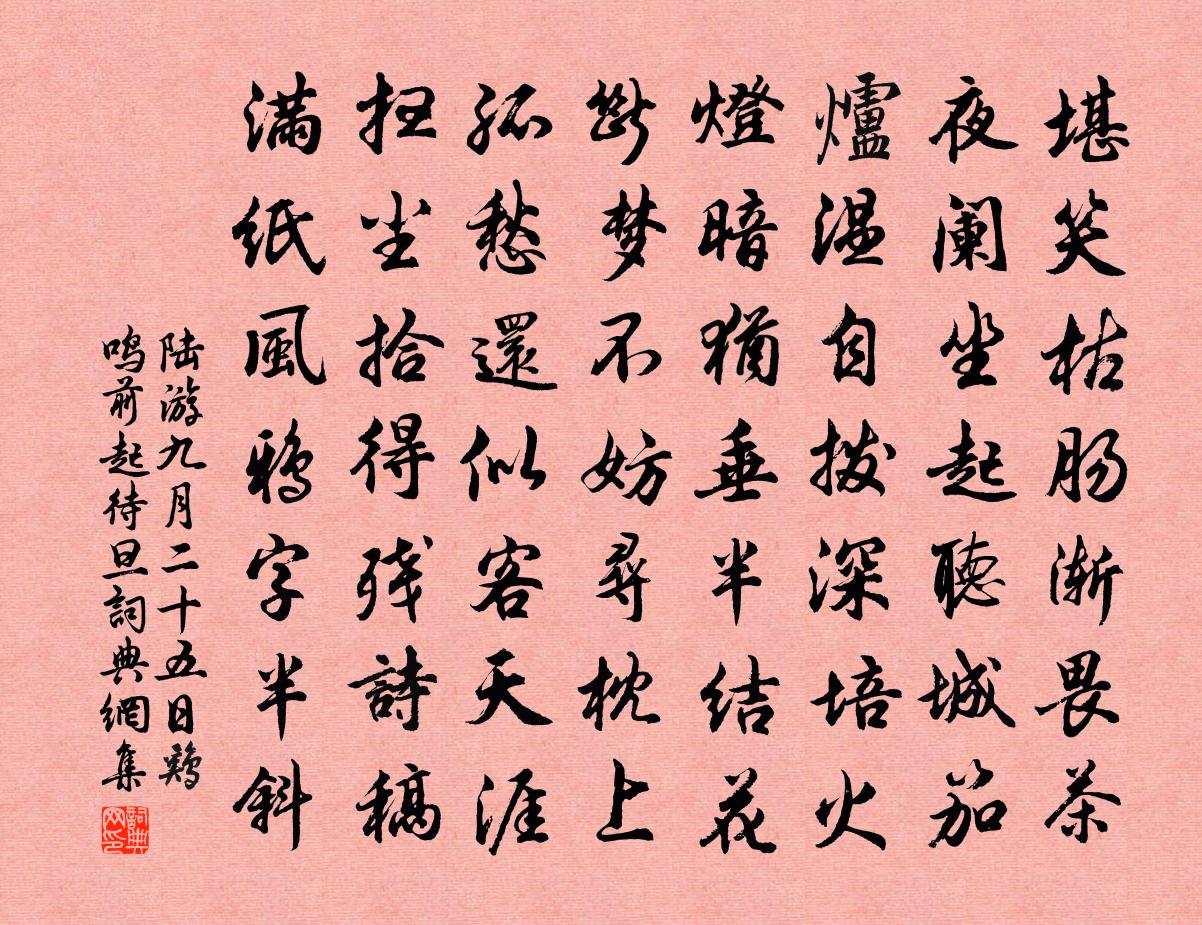 堪笑枯肠渐畏茶
夜阑坐起聽城笳
爐温自拨深培火
燈暗猶垂半结花
断梦不妨尋枕上
孤愁還似客天涯
扫尘拾得残詩稿
满纸風鸦字半斜
陆游九月二十五日鷄
鸣前起待旦詞典網集
詞典
网印